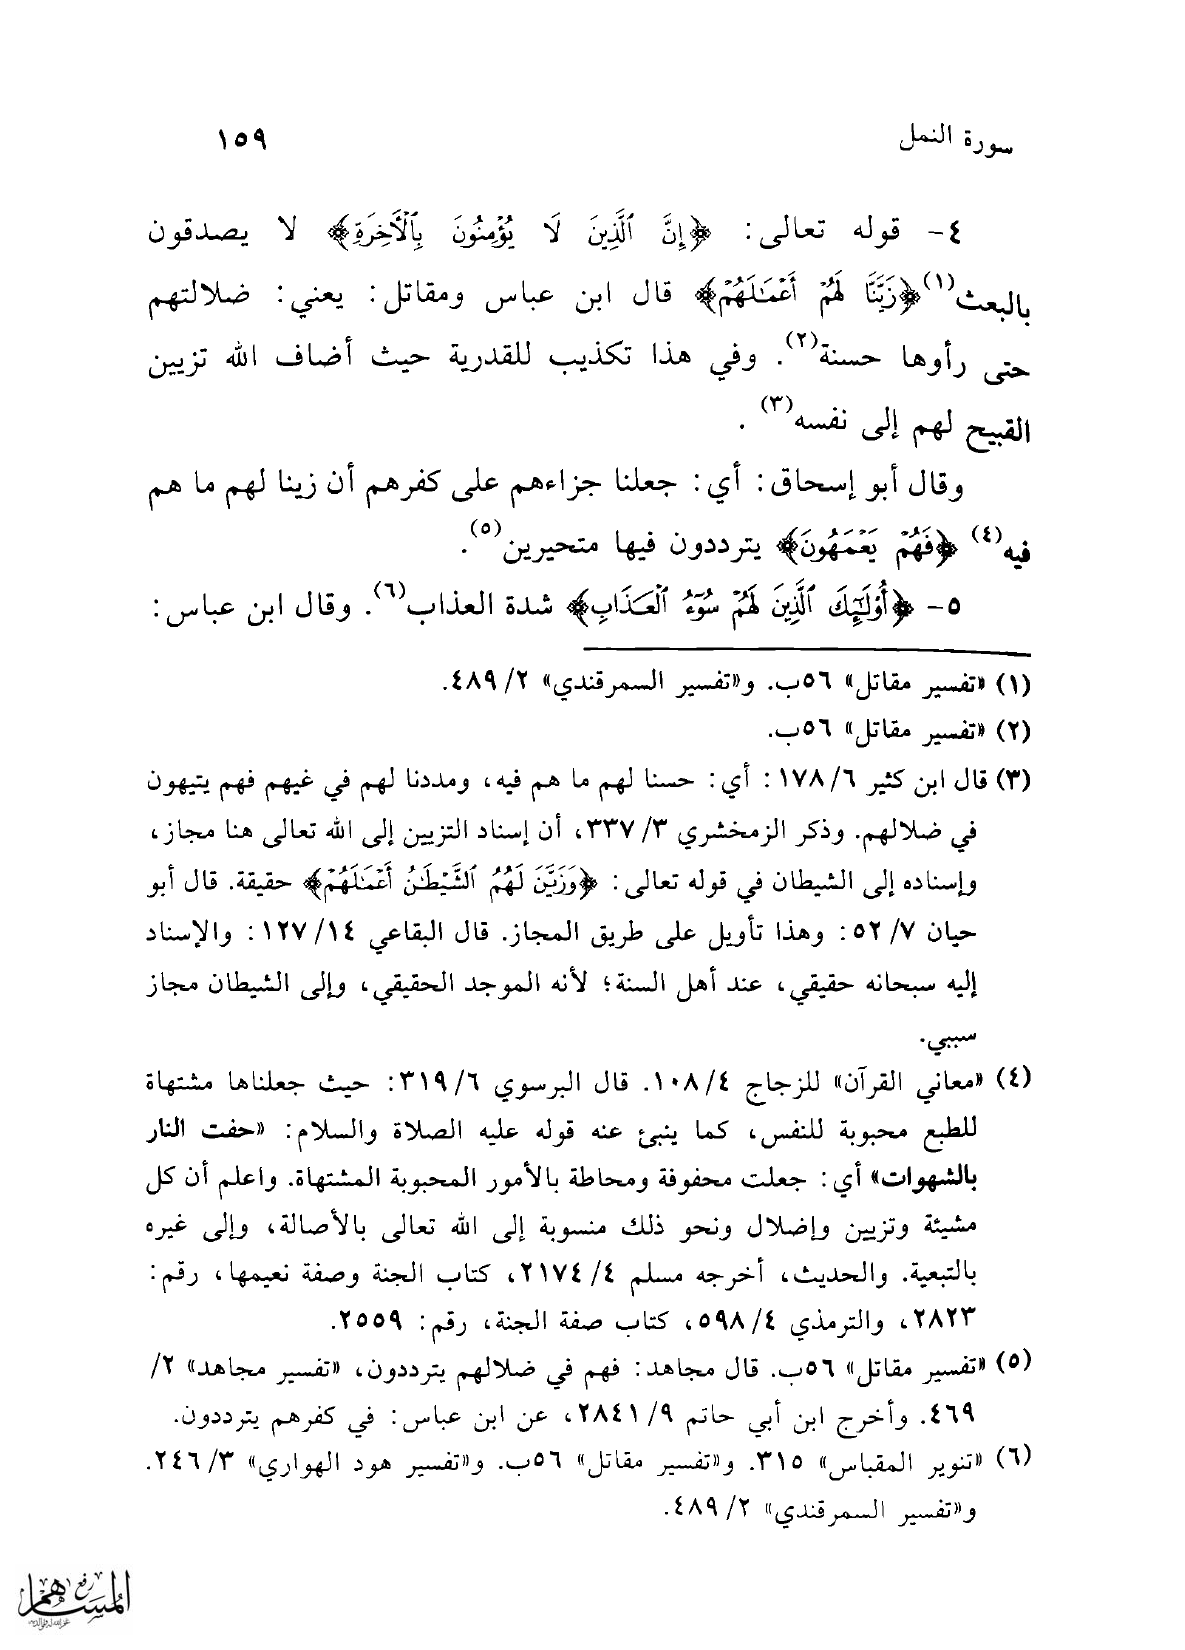 سورة النمل
١٥٩
٤- قوله تعالى: ﴿إِنَّ ٱلَّذِينَ لَا يُؤْمِنُونَ بِٱلْآخِرَةِ﴾ لا يصدقون
بالبعث(١) ﴿زَيَّنَّا لَهُمْ أَعْمَٰلَهُمْ﴾ قال ابن عباس ومقاتل: يعني: ضلالتهم
حتى رأوها حسنة(٢). وفي هذا تكذيب للقدرية حيث أضاف الله تزيين
القبيح لهم إلى نفسه(٣).
وقال أبو إسحاق: أي: جعلنا جزاءهم على كفرهم أن زينا لهم ما هم
فيه(٤) ﴿فَهُمْ يَعْمَهُونَ﴾ يترددون فيها متحيرين(٥).
٥- ﴿أُوْلَٰٓئِكَ ٱلَّذِينَ لَهُمْ سُوٓءُ ٱلْعَذَابِ﴾ شدة العذاب(٦). وقال ابن عباس:
(١) «تفسير مقاتل» ٥٦ب. و«تفسير السمرقندي» ٢/ ٤٨٩.
(٢) «تفسير مقاتل» ٥٦ب.
(٣) قال ابن كثير ٦/ ١٧٨: أي: حسنا لهم ما هم فيه، ومددنا لهم في غيهم فهم يتيهون
في ضلالهم. وذكر الزمخشري ٣/ ٣٣٧، أن إسناد التزيين إلى الله تعالى هنا مجاز،
وإسناده إلى الشيطان في قوله تعالى: ﴿وَزَيَّنَ لَهُمُ ٱلشَّيْطَٰنُ أَعْمَٰلَهُمْ﴾ حقيقة. قال أبو
حيان ٧/ ٥٢: وهذا تأويل على طريق المجاز. قال البقاعي ١٤/ ١٢٧: والإسناد
إليه سبحانه حقيقي، عند أهل السنة؛ لأنه الموجد الحقيقي، وإلى الشيطان مجاز
سببي.
(٤) «معاني القرآن» للزجاج ٤/ ١٠٨. قال البرسوي ٦/ ٣١٩: حيث جعلناها مشتهاة
للطبع محبوبة للنفس، كما ينبئ عنه قوله عليه الصلاة والسلام: «حفت النار
بالشهوات» أي: جعلت محفوفة ومحاطة بالأمور المحبوبة المشتهاة. واعلم أن كل
مشيئة وتزيين وإضلال ونحو ذلك منسوبة إلى الله تعالى بالأصالة، وإلى غيره
بالتبعية. والحديث، أخرجه مسلم ٤/ ٢١٧٤، كتاب الجنة وصفة نعيمها، رقم:
٢٨٢٣، والترمذي ٤/ ٥٩٨، كتاب صفة الجنة، رقم: ٢٥٥٩.
(٥) «تفسير مقاتل» ٥٦ب. قال مجاهد: فهم في ضلالهم يترددون، «تفسير مجاهد» ٢/
٤٦٩. وأخرج ابن أبي حاتم ٩/ ٢٨٤١، عن ابن عباس: في كفرهم يترددون.
(٦) «تنوير المقباس» ٣١٥. و«تفسير مقاتل» ٥٦ب. و«تفسير هود الهواري» ٣/ ٢٤٦.
و«تفسير السمرقندي» ٢/ ٤٨٩.